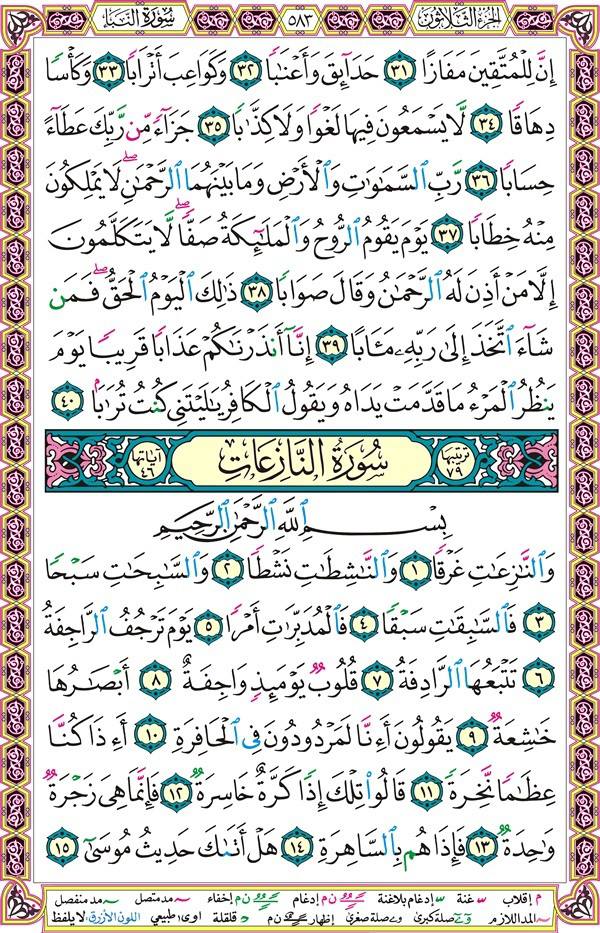 الجزء الثلاثون ٥٨٣ سورة النبأ
إِنَّ لِلْمُتَّقِينَ مَفَازًا ٣١ حَدَآئِقَ وَأَعْنَٰبًا ٣٢ وَكَوَاعِبَ أَتْرَابًا ٣٣ وَكَأْسًا
دِهَاقًا ٣٤ لَّا يَسْمَعُونَ فِيهَا لَغْوًا وَلَا كِذَّٰبًا ٣٥ جَزَآءً مِّن رَّبِّكَ عَطَآءً
حِسَابًا ٣٦ رَّبِّ ٱلسَّمَٰوَٰتِ وَٱلْأَرْضِ وَمَا بَيْنَهُمَا ٱلرَّحْمَٰنِۖ لَا يَمْلِكُونَ
مِنْهُ خِطَابًا ٣٧ يَوْمَ يَقُومُ ٱلرُّوحُ وَٱلْمَلَٰٓئِكَةُ صَفًّاۖ لَّا يَتَكَلَّمُونَ
إِلَّا مَنْ أَذِنَ لَهُ ٱلرَّحْمَٰنُ وَقَالَ صَوَابًا ٣٨ ذَٰلِكَ ٱلْيَوْمُ ٱلْحَقُّۖ فَمَن
شَآءَ ٱتَّخَذَ إِلَىٰ رَبِّهِۦ مَـَٔابًا ٣٩ إِنَّآ أَنذَرْنَٰكُمْ عَذَابًا قَرِيبًا يَوْمَ
يَنظُرُ ٱلْمَرْءُ مَا قَدَّمَتْ يَدَاهُ وَيَقُولُ ٱلْكَافِرُ يَٰلَيْتَنِى كُنتُ تُرَٰبًۢا ٤٠
ترتيبها ٧٩ سُورَةُ النَّازِعَاتِ آياتها ٤٦
بِسْمِ ٱللَّهِ ٱلرَّحْمَٰنِ ٱلرَّحِيمِ
وَٱلنَّٰزِعَٰتِ غَرْقًا ١ وَٱلنَّٰشِطَٰتِ نَشْطًا ٢ وَٱلسَّٰبِحَٰتِ سَبْحًا
٣ فَٱلسَّٰبِقَٰتِ سَبْقًا ٤ فَٱلْمُدَبِّرَٰتِ أَمْرًا ٥ يَوْمَ تَرْجُفُ ٱلرَّاجِفَةُ
٦ تَتْبَعُهَا ٱلرَّادِفَةُ ٧ قُلُوبٌ يَوْمَئِذٍ وَاجِفَةٌ ٨ أَبْصَٰرُهَا
خَٰشِعَةٌ ٩ يَقُولُونَ أَءِنَّا لَمَرْدُودُونَ فِى ٱلْحَافِرَةِ ١٠ أَءِذَا كُنَّا
عِظَٰمًا نَّخِرَةً ١١ قَالُوا۟ تِلْكَ إِذًا كَرَّةٌ خَاسِرَةٌ ١٢ فَإِنَّمَا هِىَ زَجْرَةٌ
وَٰحِدَةٌ ١٣ فَإِذَا هُم بِٱلسَّاهِرَةِ ١٤ هَلْ أَتَىٰكَ حَدِيثُ مُوسَىٰٓ ١٥
م إقلاب غنة إدغام بلاغنة ن م إدغام إخفاء مد متصل مد منفصل
المد اللازم صلة كبرى صلة صغرى إظهار قلقلة اوى طبيعي اللون الأزرق: لا يلفظ